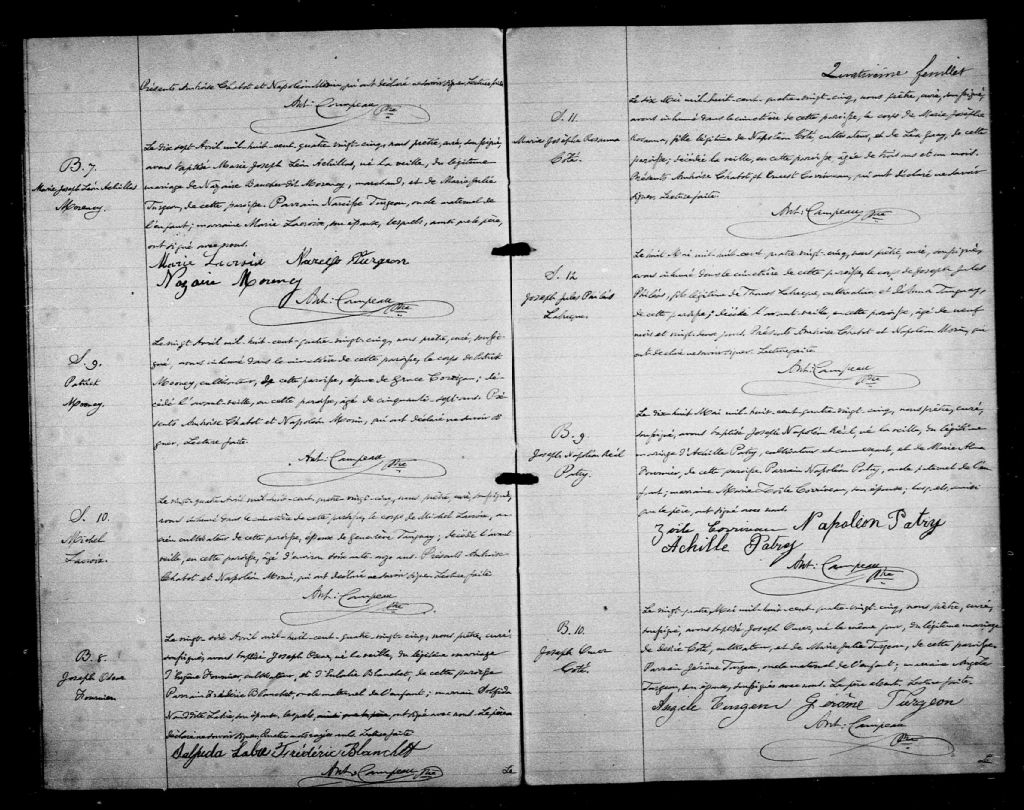 Présents Ambroise Chabot et Napoléon Morin, qui ont déclaré ne savoir signer. Lecture faite.
Ant: Campeau Ptre
B. 7.
Marie Joseph Léon Achillas
Morency.
Le dix sept Avril mil huit-cent-quatre-vingt-cinq, nous prêtre, curé, soussigné,
avons baptisé Marie Joseph Léon Achillas, né la veille, du légitime
mariage de Nazaire Baucher dit Morency, marchand, et de Marie Julie
Turgeon, de cette paroisse. Parrain Narcisse Turgeon, oncle maternel de
l'enfant; marraine Marie Lacroix, son épouse, lesquels, ainsi que le père,
ont signé avec nous.
Marie Lacroix Narcisse Turgeon
Nazaire Morency
Ant: Campeau Ptre
S. 9.
Patrick
Mooney.
Le vingt Avril mil huit-cent-quatre-vingt-cinq, nous prêtre, curé, soussi-
gné, avons inhumé dans le cimetière de cette paroisse, le corps de Patrick
Mooney, cultivateur, de cette paroisse, époux de Grace Corrigan; dé-
cédé l'avant-veille, en cette paroisse, âgé de cinquante-sept ans. Pré-
sents Ambroise Chabot et Napoléon Morin, qui ont déclaré ne savoir si-
gner. Lecture faite.
Ant: Campeau Ptre
S. 10.
Michel
Lacroix.
Le vingt-quatre Avril mil huit-cent-quatre-vingt-cinq, nous prêtre, curé, soussigné,
avons inhumé dans le cimetière de cette paroisse, le corps de Michel Lacroix, an-
cien cultivateur de cette paroisse, époux de Geneviève; décédé l'avant
veille, en cette paroisse, âgé d'environ soixante ans. Présents Ambroise
Chabot et Napoléon Morin, qui ont déclaré ne savoir signer. Lecture faite.
Ant: Campeau Ptre
B. 8.
Joseph
Fournier.
Le vingt Avril mil-huit-cent-quatre-vingt-cinq, nous prêtre, curé,
soussigné, avons baptisé Joseph, né la veille, du légitime mariage
d'Eugène Fournier, cultivateur, et d'Eulalie Blanchet, de cette paroisse.
Parrain Frédéric Blanchet, oncle maternel de l'enfant; marraine Delphida
Labbé, son épouse, lesquels, ainsi que le père, ont signé avec nous. Le père a
déclaré ne savoir signer. Lecture faite.
Delfida Labbé Frédéric Blanchett
Ant: Campeau Ptre
Le
Quatrième feuillet
S. 11.
Marie Josephte Rosanna
Coté.
Le dix Mai mil-huit-cent-quatre-vingt-cinq, nous prêtre, curé, soussigné,
avons inhumé dans le cimetière de cette paroisse, le corps de Marie Josephte
Rosanna, fille légitime de Napoléon Coté, cultivateur, et de Léa, de cette
paroisse; décédée la veille, en cette paroisse âgée de trois ans et un mois.
Présents Ambroise Chabot et Ernest Corriveau, qui ont déclaré ne savoir
signer. Lecture faite.
Ant: Campeau Ptre
S. 12
Joseph Jules
Labrecque.
Le huit Mai mil huit-cent quatre-vingt-cinq, nous prêtre, curé, soussigné,
avons inhumé dans le cimetière de cette paroisse, le corps de Joseph Jules
fils légitime de Thomas Labrecque, cultivateur et de,
de cette paroisse; décédé l'avant veille en cette paroisse, âgé de neuf
mois et vingt-deux jours. Présents Ambroise Chabot et Napoléon Morin, qui
ont déclaré ne savoir signer. Lecture faite.
Ant: Campeau Ptre
B. 9
Joseph Napoléon Réal
Patry.
Le dix huit Mai mil huit-cent-quatre-vingt-cinq, nous prêtre, curé,
soussigné, avons baptisé Joseph Napoléon Réal, né la veille, du légitime
mariage d'Achille Patry, cultivateur et commerçant, et de Marie Alma
Fournier, de cette paroisse. Parrain Napoléon Patry, oncle paternel de l'en-
fant; marraine Marie Zoïle Corriveau, son épouse; lesquels, ainsi
que le père, ont signé avec nous.
Zoile Corriveau Napoléon Patry
Achille Patry
Ant: Campeau Ptre
B. 10.
Joseph Omer
Coté.
Le vingt-quatre Mai mil-huit-cent-quatre-vingt-cinq, nous, prêtre, curé,
soussigné, avons baptisé Joseph Omer, né le même jour, du légitime mariage
de Désiré Coté, cultivateur, et de Marie Julie Turgeon, de cette paroisse.
Parrain Jérôme Turgeon, oncle maternel de l'enfant; marraine Angèle
Turgeon, son épouse, soussignés avec nous. Le père absent. Lecture faite.
Angèle Turgeon Gérôme Turgeon
Ant: Campeau
Ptre
Le